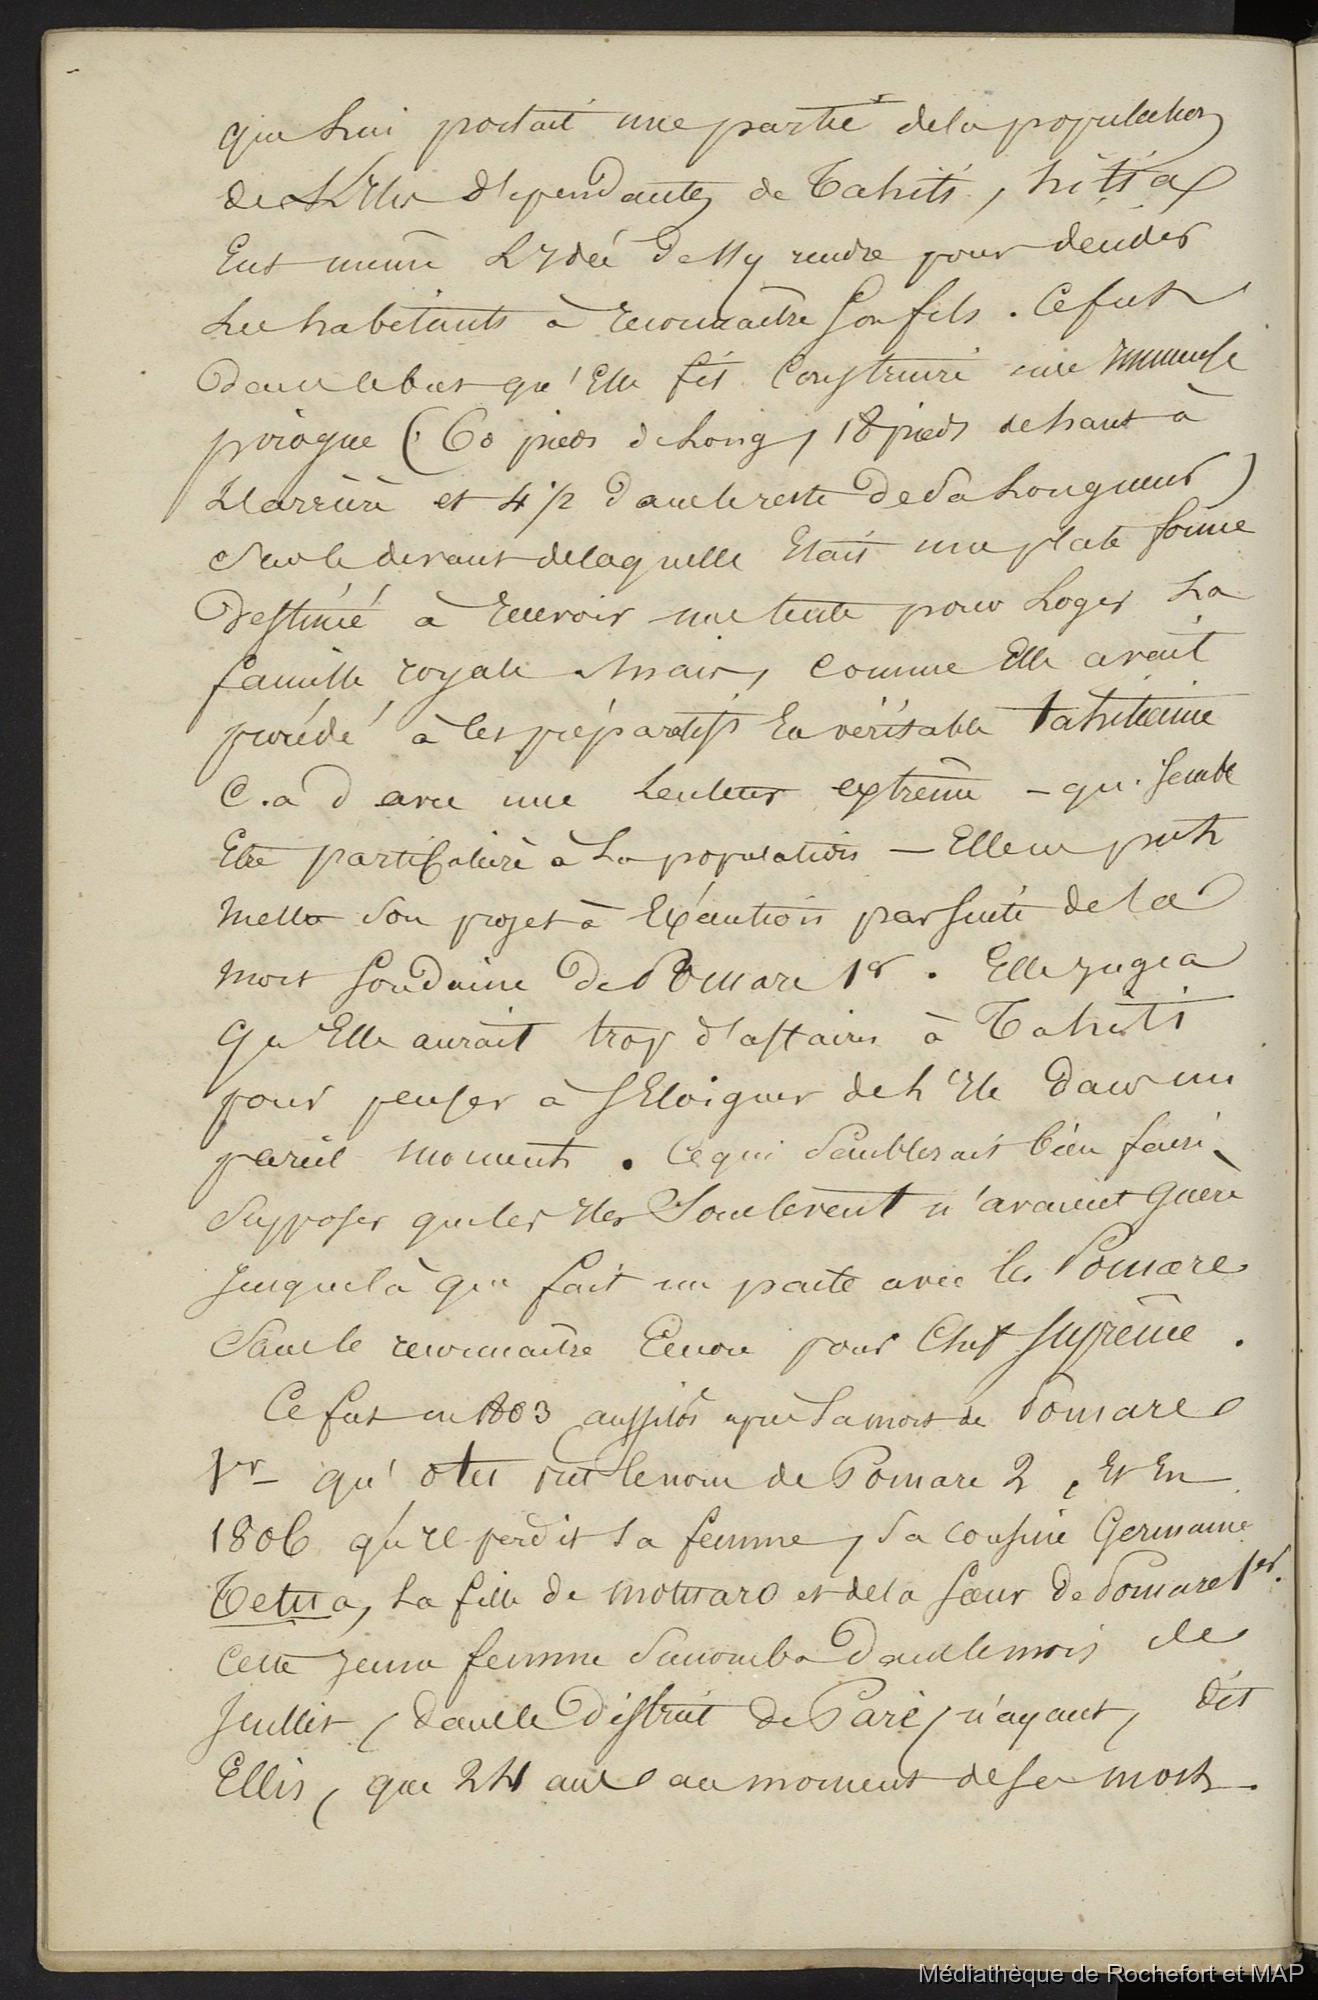 que lui portait une partie de la population
des Iles dépendantes de Tahiti, hitia
Eut même L'Idée de s'y rendre pour décider
Les habitants à reconnaître son fils. Ce fut
dans le but qu'Elle fit Construire une Immense
pirogue (60 pieds de Long, 18 pieds de haut à
L'arrière et 4 1/2 dans le reste de sa Longueur)
sur le devant de laquelle Etait une plate forme
Destinée à recevoir une tente pour Loger La
famille royale. Mais, comme Elle avait
procédé à ces préparatifs En véritable tahitienne
C. a d avec une Lenteur extrême - qui semble
Etre particulière à La population - Elle ne put
Mettre son projet à Exécution par suite de la
Mort soudaine de Pomare 1er. Elle jugea
qu'Elle aurait trop d'affaires à Tahiti
pour penser à s'Eloigner de L'Ile dans un
pareil moment. Ce qui semblerait bien faire
Supposer que les Iles Sous le vent n'avaient Guère
jusque là que fait un pacte avec les Pomare
Sans le reconnaître Encore pour Chef suprême.
Ce fut en 1803 aussitôt après la mort de Pomare
1er qu'otu prit le nom de Pomare 2, Et En
1806 qu'Il perdit sa femme, sa cousine Germaine
Tetua, La fille de motuaro et de la sœur de Pomare 1er.
Cette jeune femme succomba dans le mois de
Juillet, dans le District de Paré, n'ayant, dit
Ellis, que 24 ans au moment de sa mort.
Médiathèque de Rochefort et MAP